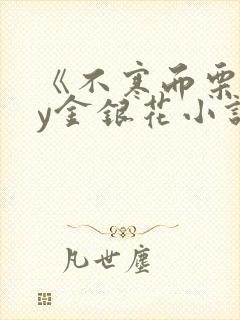 《不寒而栗b
y金银花小说
凡世尘